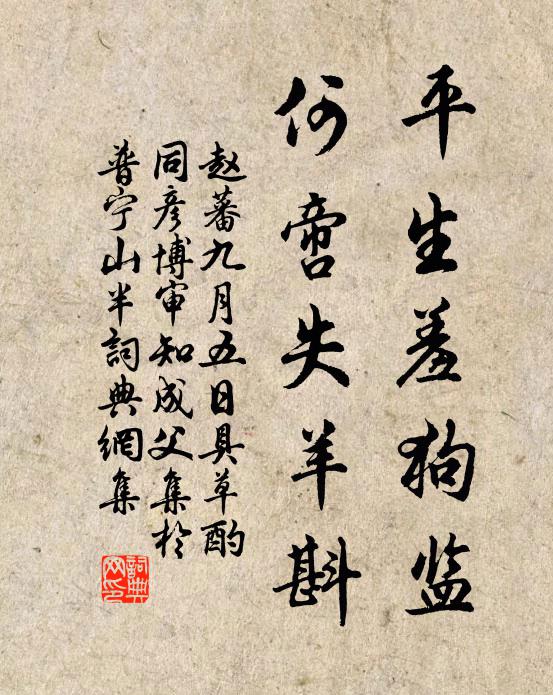 平生羞狗监
何啻失羊斟
赵蕃九月五日具草酌
同彦博审知成父集于
普宁山半詞典網集
詞典
网印